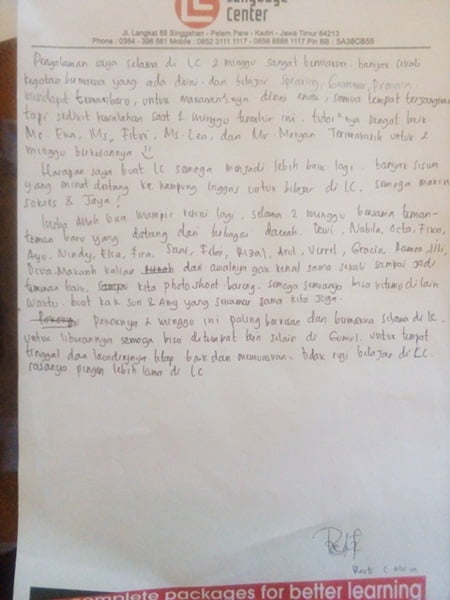 Language
Center
Jl. Langkat 88 Singgahan - Pelem Pare - Kediri - Jawa Timur 64213
Phone : 0354 - 396 561 Mobile : 0852 3111 1117 - 0856 8888 1117 Pin BB : 5A38CB55
Pengalaman saya selama di LC 2 minggu sangat bermakna. banyak sekali
kegiatan bermakna yang ada disini. dan belajar Speaking, Grammar,
mendapat teman baru, untuk makanan²nya disini enak, semua tempat terjangkau
tapi sedikit saat 1 minggu terakhir ini. tutor²nya sangat baik
Ms Eka, Ms. Fitri, Ms. Lea, dan Mr. Morgan Terimakasih untuk 2
minggu berkesannya
Harapan saya buat LC semoga menjadi lebih baik lagi. banyak siswa
yang minat datang ke kampung Inggris untuk belajar di LC. semoga makin
sukses & Jaya!
Insha Allah bisa mampir kesini lagi, selama 2 minggu bersama teman-
teman baru yang datang dari berbagai daerah. Dewi, Nabila, Octa, Fikri,
Ayu, Nindy, Elsa, Fira, Sani, Febri, Rizal, Arul, Verrel, Gracia, Ramon,
Deva. Makasih kalian dari awalnya gak kenal sama sekali sampai jadi
teman baik, kita photoshoot bareng. semoga semuanya bisa ketemu di lain
waktu. buat kak Sun & Amy yang sekamar sama kita juga.
Pokoknya 2 minggu ini paling berkesan dan bermakna selama di LC.
untuk liburannya semoga bisa ditempat lain selain di Gumul. untuk tempat
tinggal dan laundrynya tetap baik dan memuaskan. tidak rugi belajar di LC.
rasanya pingen lebih lama di LC
complete packages for better learning